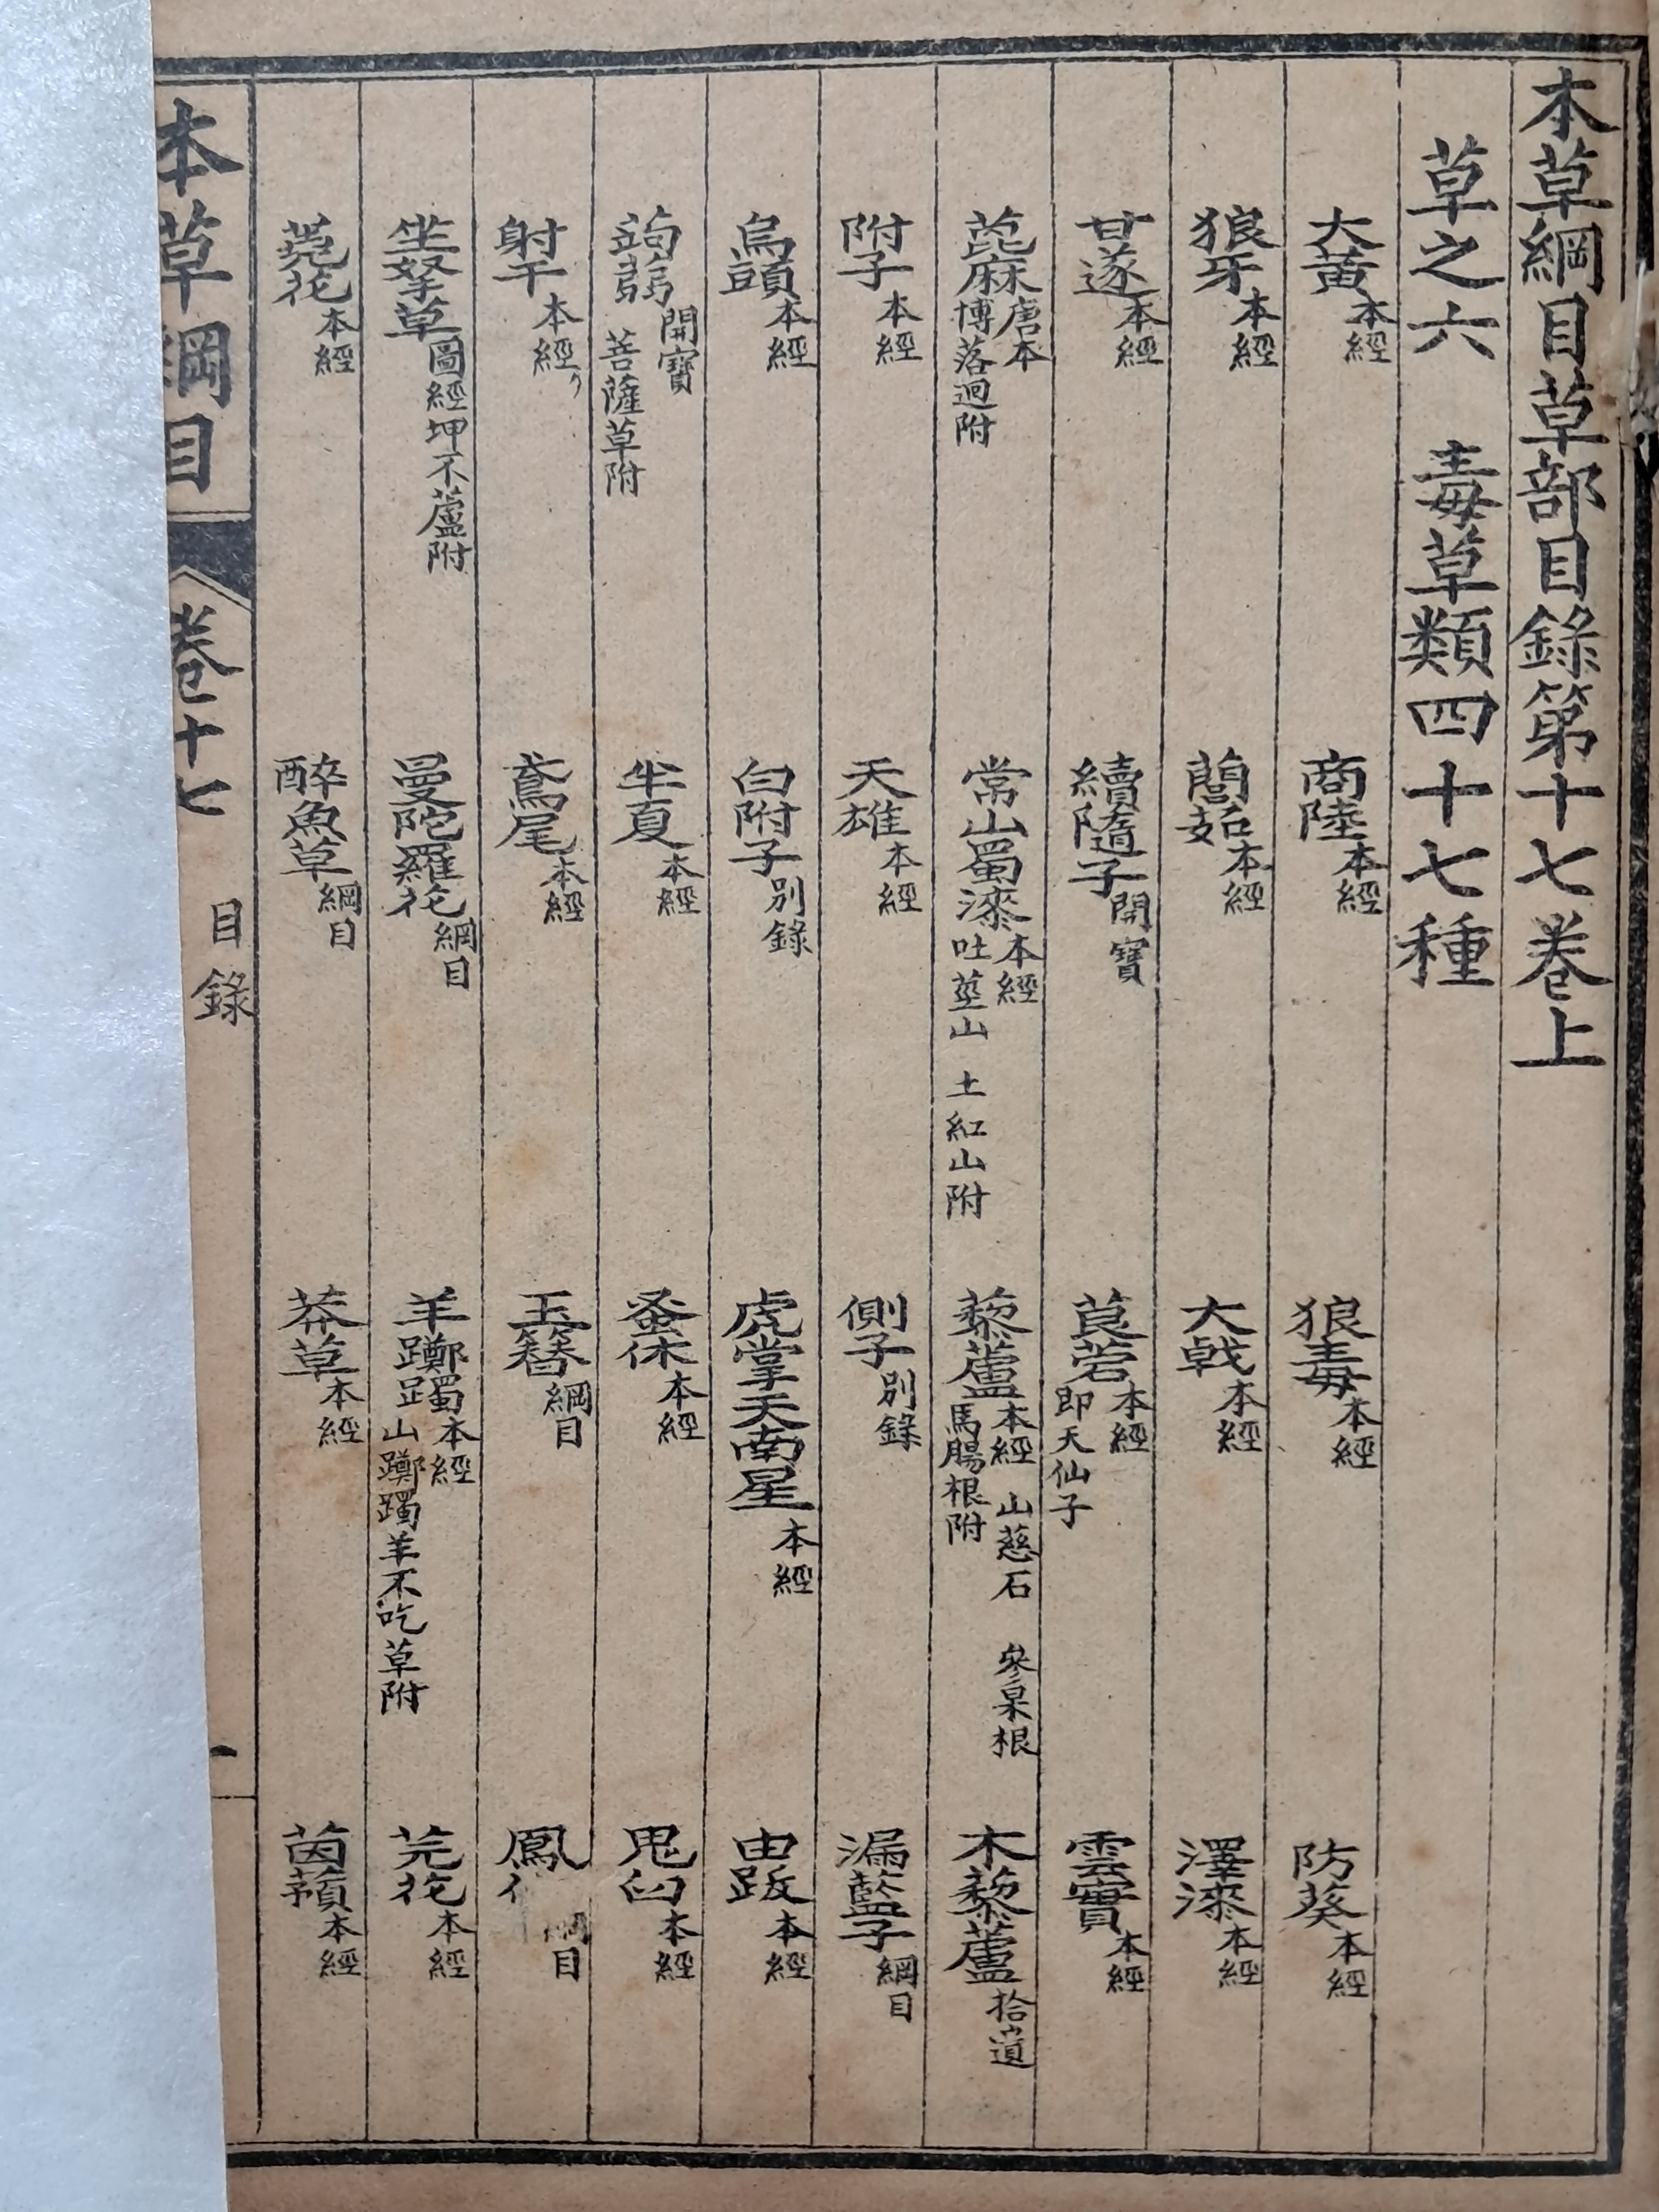 本草綱目草部目錄第十七卷上
草之六　毒草類四十七種
大黃本經　商陸本經　狼毒本經　防葵本經
狼牙本經　藘茹本經　大戟本經　澤漆本經
甘遂本經　續隨子開寶　莨菪本經即天仙子　雲實本經
蓖麻唐本博落迴附　常山蜀漆本經吐莖山　土紅山附　藜蘆本經　山慈石　參果根　馬腸根附　木藜蘆拾遺
附子本經　天雄本經　側子別錄　漏藍子綱目
烏頭本經　白附子別錄　虎掌天南星本經　由跋本經
蒟蒻開寶　菩薩草附　半夏本經　蚤休本經　鬼臼本經
射干本經　鳶尾本經　玉簪綱目　鳳　目
坐拏草圖經押不蘆附　曼陀羅花綱目　羊躑躅本經山躑躅羊不吃草附　芫花本經
蕘花本經　醉魚草綱目　莽草本經　茵蕷本經
本草綱目　卷十七　目錄　一